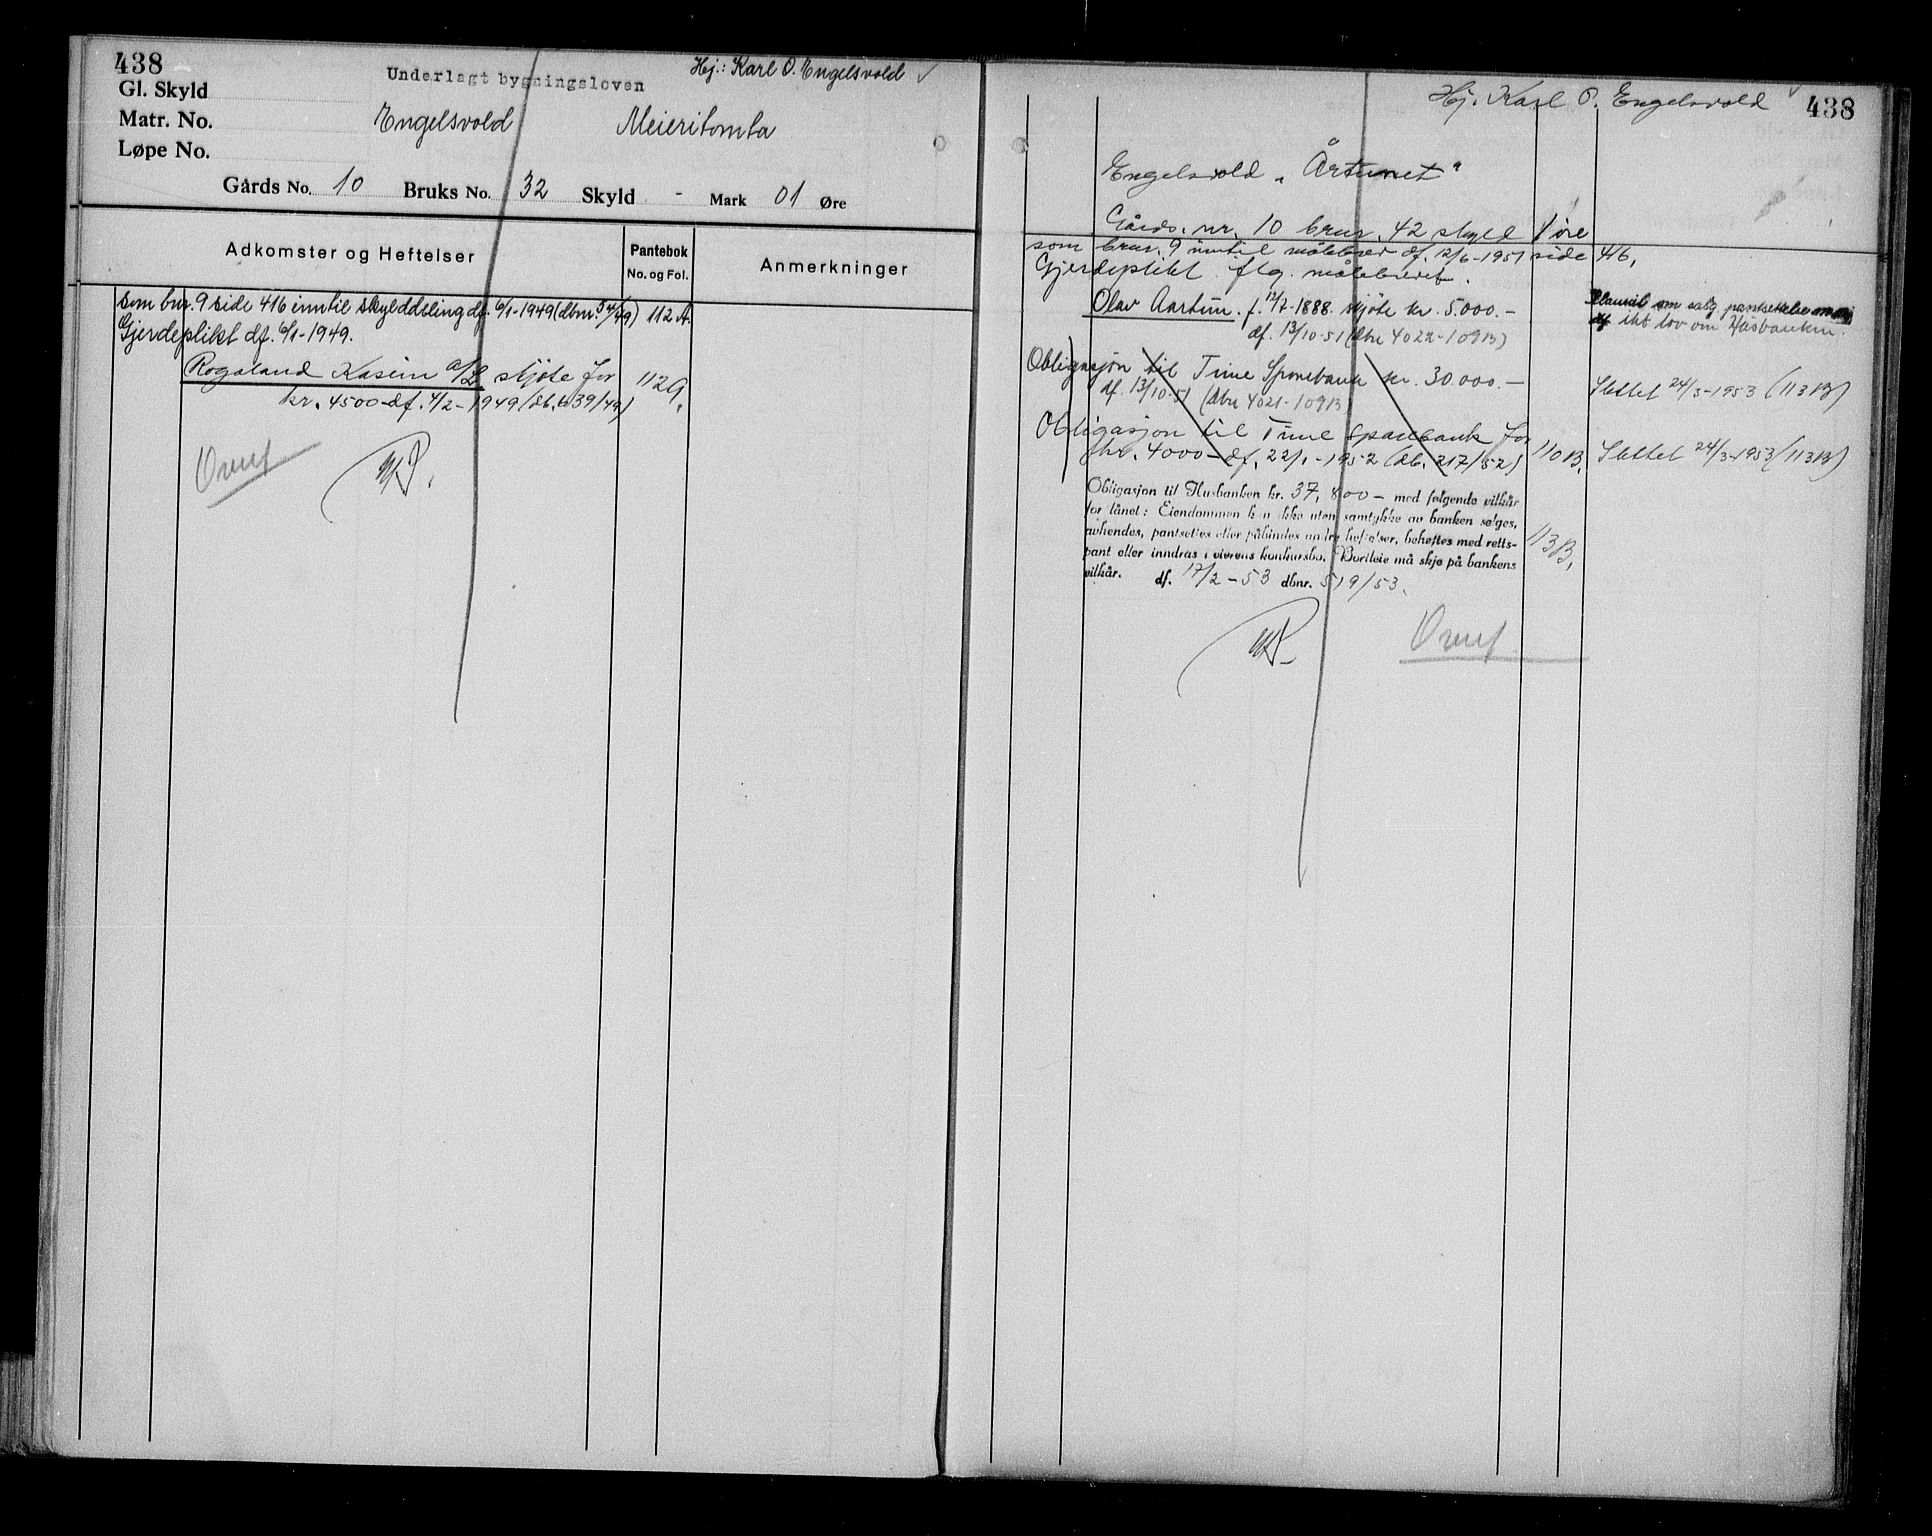 438
Underlagt bygningsloven
Hj.: Karl O. Engelsvold
Gl. Skyld
Matr. No.
Engelsvold Meieritomta
Løpe No.
Gårds No. 10 Bruks No. 32 Skyld - Mark 01 Øre
Adkomster og Heftelser
Pantebok
No. og Fol.
Anmerkninger
som bnr. 9 side 416 inntil skylddeling df. 6/1-1949 (dbnr. 54/49) 112 A.
Gjerdeplikt df. 6/1-1949.
Rogaland Kasein A/L skjøte for
kr. 4500 df. 4/2-1949 (db. 639/49) 112 9.
Overf
Hj. Karl O. Engelsvold
438
Engelsvold „Årtunet"
Gårds. nr. 10 brnr. 42 skyld 1 øre
som brnr. 9 inntil målebrev df. 12/6-1951 side 416,
Gjerdeplikt flg. målebrevet.
Olav Aartun. f. 12/7-1888. skjøte kr. 5.000.-
df. 13/10-51 (dbnr 4022-109B)
Klausul om salg pantsettelse
df ikt lov om Husbanken.
Obligasjon til Time Sparebank kr. 30.000.-
df. 13/10-51 (dbnr 4021-109B)
Slettet 24/3-1953 (113B)
Obligasjon til Time Sparebank for
kr. 4000 - df. 22/1-1952 (db. 217/52) 110B.
Slettet 24/3-1953 (113B)
Obligasjon til Husbanken kr. 37,800 - med følgende vilkår
for lånet: Eiendommen kan ikke uten samtykke av banken selges,
avhendes, pantsettes eller påbindes andre heftelser, beheftes med retts-
pant eller inndras i eierens konkursbo. Bortleie må skje på bankens
vilkår. df. 17/2-53 dbnr. 519/53.
113B.
Overf